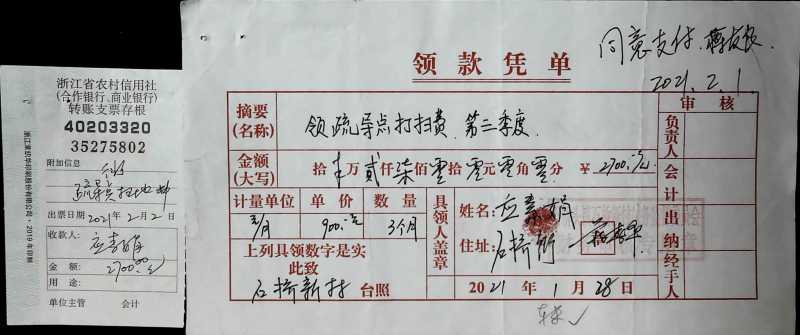 浙江省农村信用社
(合作银行、商业银行)
转账支票存根
40203320
35275802
附加信息
出票日期 2021年2月2日
收款人：
应素娟
金额： 2700.00元
用途：
单位主管 会计
领款凭单
同意支付
2021.2.1
审核
摘要
(名称)
领疏导点打扫费 第三季度.
金额
(大写)
拾 万 贰仟柒佰零拾零元零角零分 ￥2700.元
计量单位 单价 数量
元/月 900.元 3个月
上列具领数字是实
此致
石桥新村 台照
具领人盖章
姓名：应素娟
住址：石桥所
2021年1月28日
负责人
会计
出纳
经手人